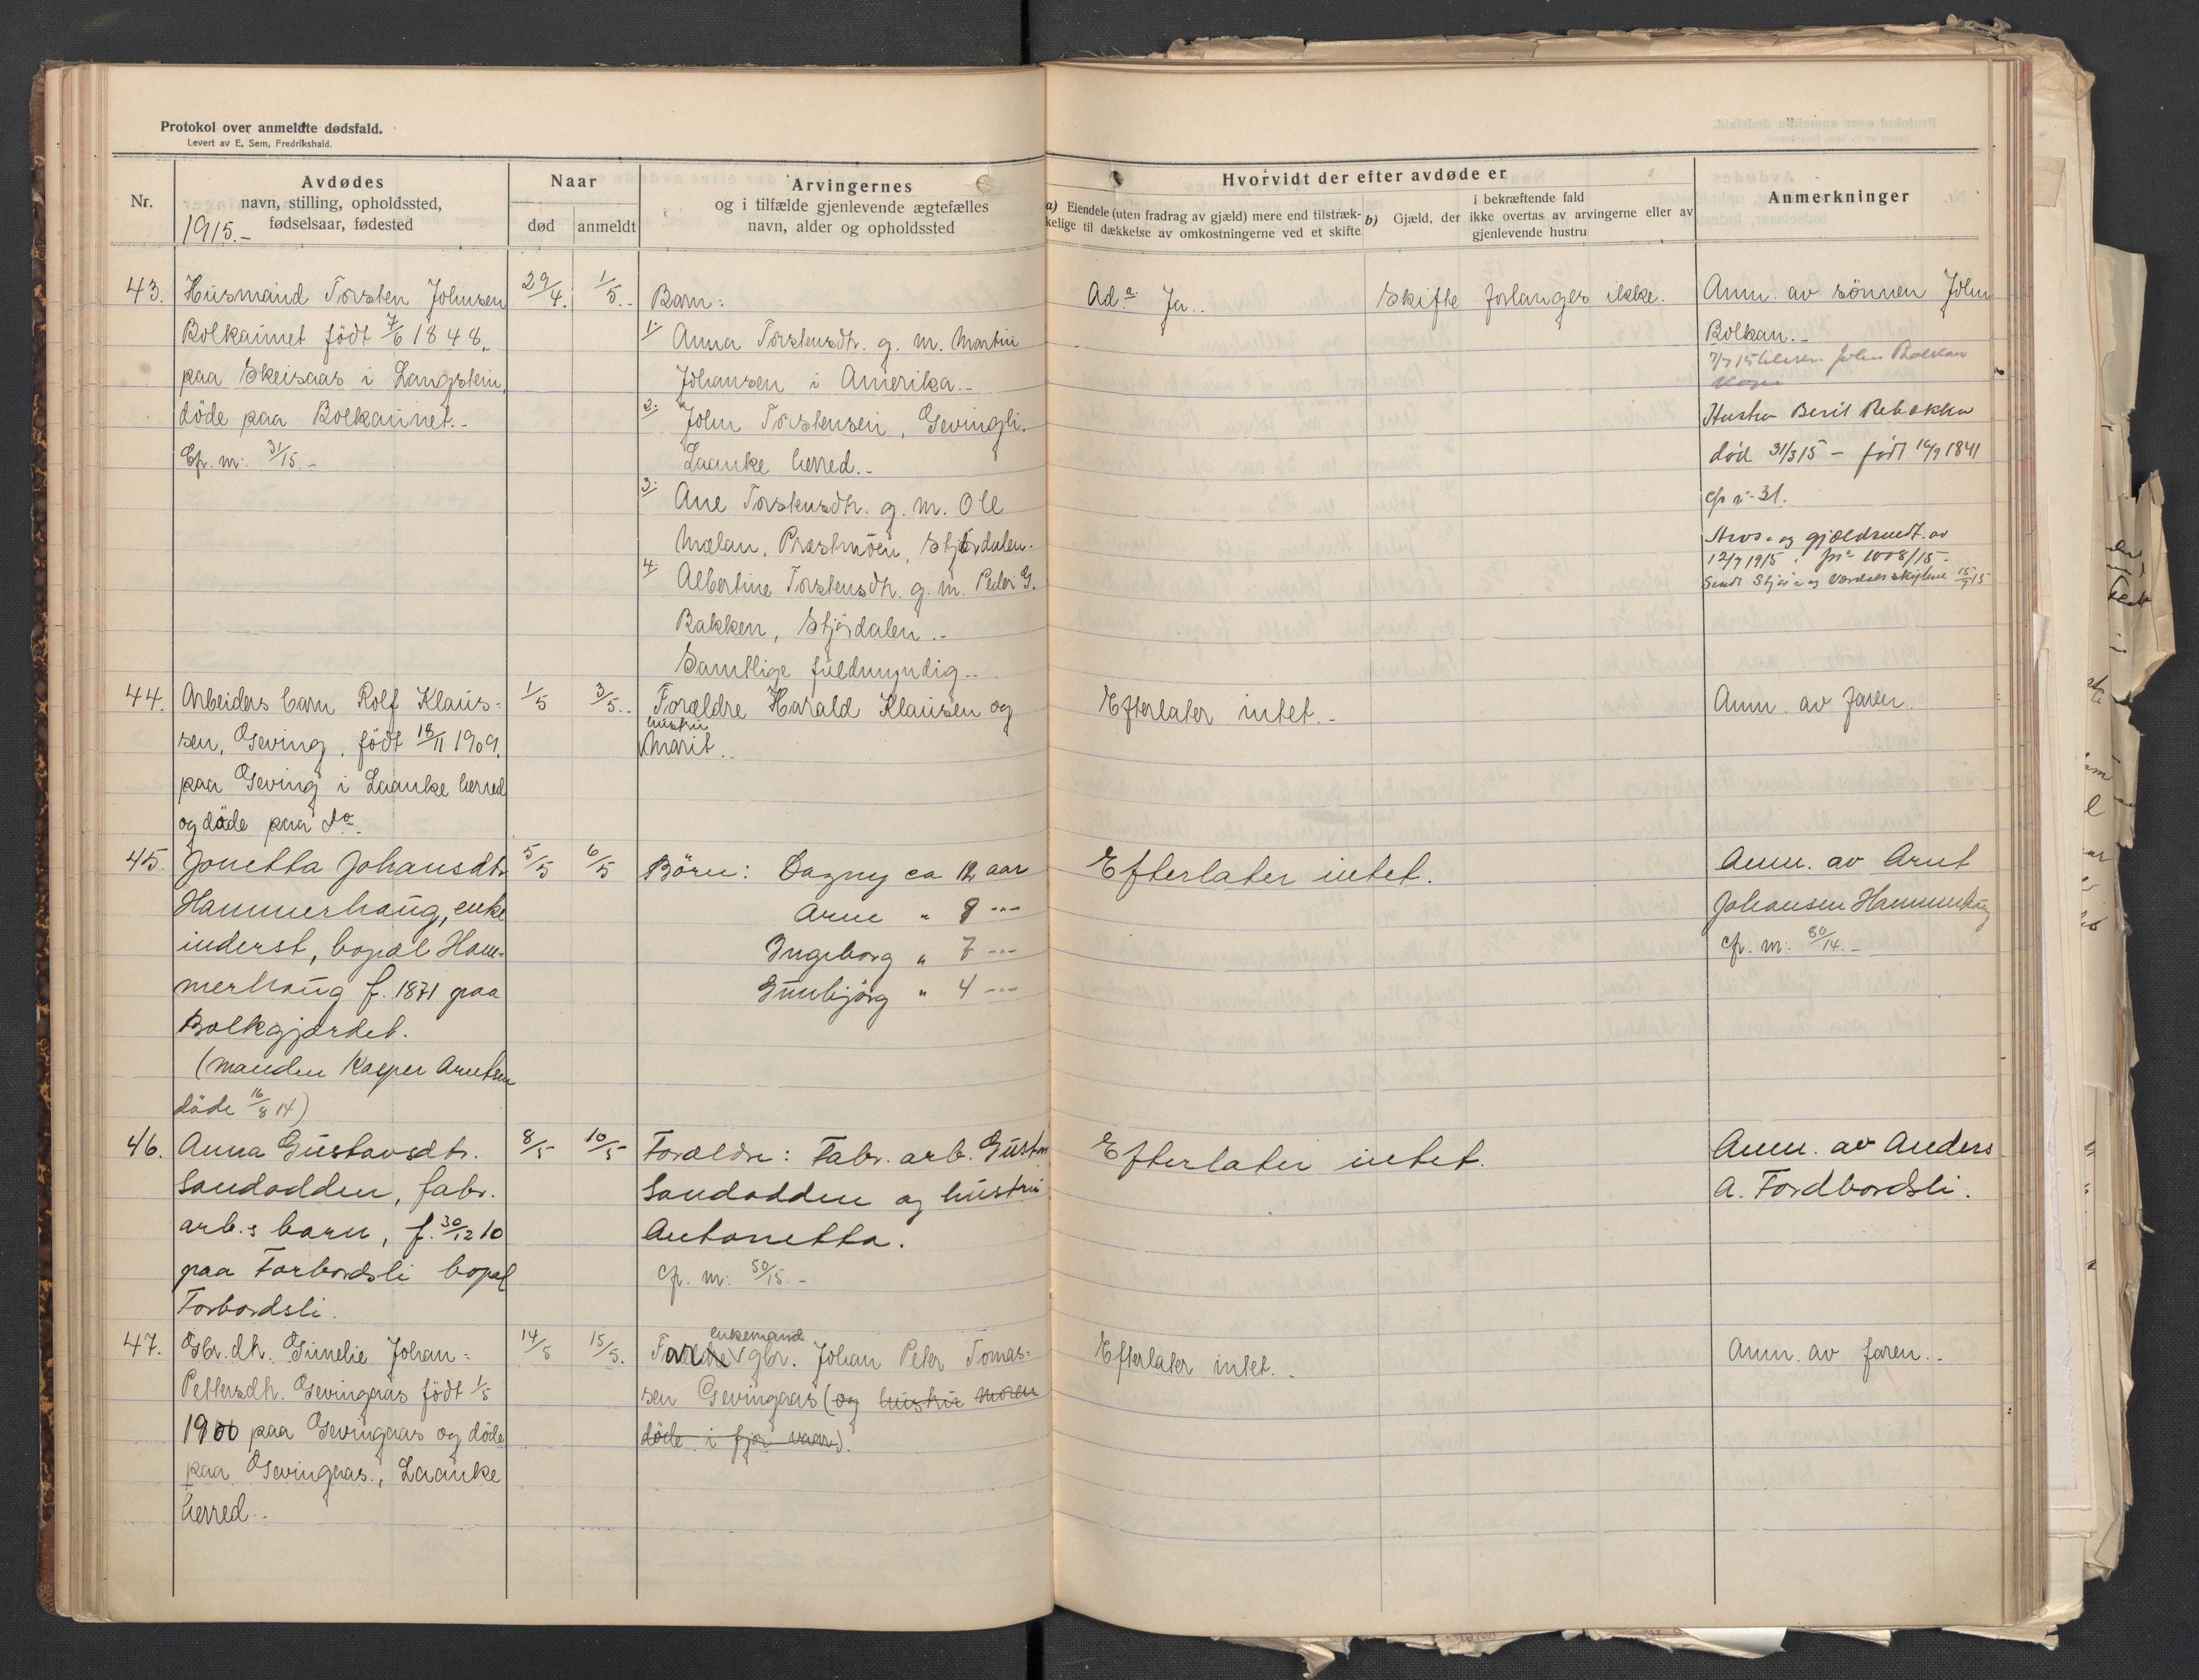 Protokol over anmeldte dødsfald.
Levert av E. Sem, Fredrikshald.
Nr.
Avdødes
navn, stilling, opholdssted,
fødselsaar, fødested
1915.-
Naar
død
anmeldt
Arvingernes
og i tilfælde gjenlevende ægtefælles
navn, alder og opholdssted
Hvorvidt der efter avdøde er
a) Eiendele (uten fradrag av gjæld) mere end tilstræk-
kelige til dækkelse av omkostningerne ved et skifte
b) Gjæld, der
i bekræftende fald
ikke overtas av arvingerne eller av
gjenlevende hustru
Anmerkninger
43.
Husmand Torsten Johnsen
Bolkaunet født 7/6 1848,
paa Skeisaas i Langstein,
döde paa Bolkaunet.-
Cfr. nr: 31/15.-
29/4.
1/5.-
Barn:
1. Anna Torstensdtr. g. m. Martin
Johansen i Amerika.-
2. John Torstensen, Gevingli,
Laanke herred.-
3. Ane Torstensdtr. g. m. Ole
Mælan, Præstmöen, Stjördalen.
4. Albertine Torstensdtr. g. m. Peder G.
Bakken, Stjördalen.-
Samtlige fuldmyndig..
Ad a. Ja..
Skifte forlanges ikke.
Anm. av sönnen John
Bolkan.-
7/7 15 John Bolkan
Hustru Berit Rebekka
död 31/3 15 - födt 1841
cfr nr 31.
Arvs- og gjældsmedt. av
12/7 1915 jnr 1008/15.
Sendt Stjør- og Værdals skifteret 15/7 15
44.
Arbeiders barn Rolf Klaus-
sen, Geving, födt 18/11 1909.
paa Geving i Laanke herred
og döde paa do.
1/5
3/5..
Forældre Harald Klausen og
hustru
Marit..
Efterlater intet.-
Anm. av faren.
45.
Jonetta Johansdtr.
Hammerhaug, enke
inderst, bopæl Ham-
merhaug f. 1871 paa
Bolkgjærdet.
(manden Kasper Arntsen
döde 16/8 14)
5/5
6/5
Börn: Dagny ca 12 aar
Arne " 8 -"-
Ingeborg " 7 -"-
Gunbjörg " 4 -"-
Efterlater intet.
Anm. av Arnt
Johansen Hammerhaug
cfr. nr: 80/14.-
46.
Anna Gustavsdtr.
Sandodden, fabr.
arb.s barn, f. 30/12 10
paa Forbordsli bopæl
Forbordsli.
8/5
10/5
Forældre: Fabr. arb. Gustav
Sandodden og hustru
Antonetta.
Cfr. nr: 50/15.-
Efterlater intet.
Anm. av Anders
A. Fordbordsli.
47.
Gbr. dtr. Gunelie Johan-
Pettersdtr. Gevingaas födt 1/5
1900 paa Gevingaas og döde
paa Gevingaas, Laanke
herred..
14/5
15/5.
enkemand
Forældre gbr. Johan Peter Tomas-
sen Gevingaas (og hustru moren
döde i fjor vaar).
Efterlater intet..
Anm. av faren..